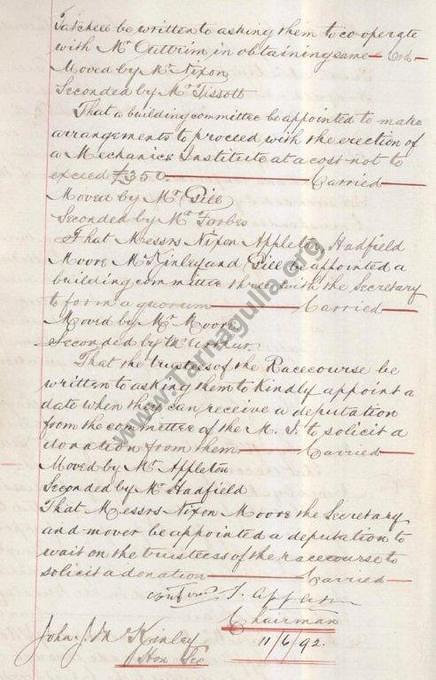 Tatchell be written to asking them to co-operate
with Mr Outtrim in obtaining same
Moved by Mr Nixon
Seconded by Mr Tissott
That a building committee be appointed to make
arrangements to proceed with the erection of
a Mechanics Institute at a cost not to
exceed £350 Carried
Moved by Mr Pill
Seconded by Mr Forbes
That Messrs Nixon Appleton Hadfield
Moore McKinley and Pill be appointed a
building committee three with the Secretary
to form a quorum Carried
Moved by Mr Moore
Seconded by Mr
That the trustees of the Racecourse be
written to asking them to kindly appoint a
date when they can receive a deputation
from the committee of the M. I. to solicit a
donation from them Carried
Moved by Mr Appleton
Seconded by Mr Hadfield
That Messrs Nixon Moore the Secretary
and mover be appointed a deputation to
wait on the trusteess of the racecourse to
solicit a donation Carried
Appleton
Chairman
John. J. McKinley 11/6/92.
Hon Sec
www.Tarnagulla.org